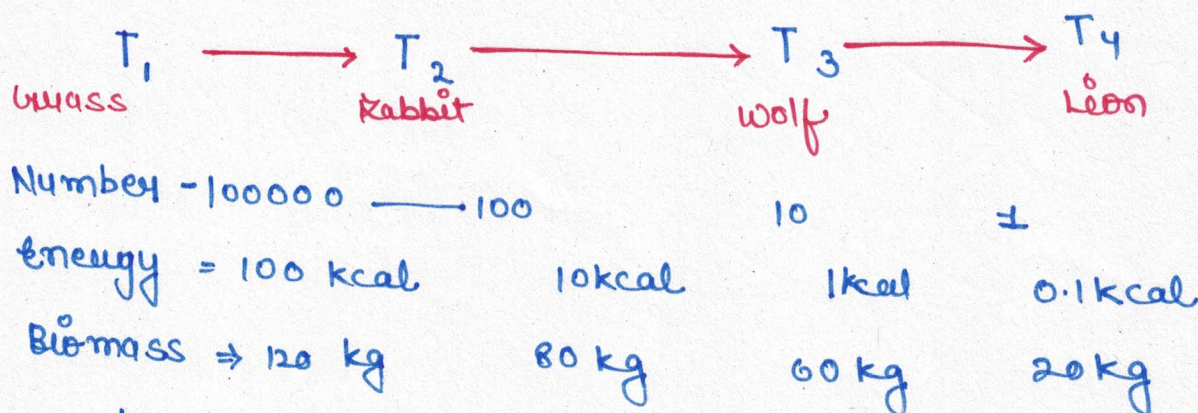 T1 → T2 → T3 → T4
Grass Rabbit Wolf Lion
Number - 100000 — 100 10 1
Energy = 100 kcal 10kcal 1kcal 0.1kcal
Biomass ⇒ 120 kg 80 kg 60 kg 20kg